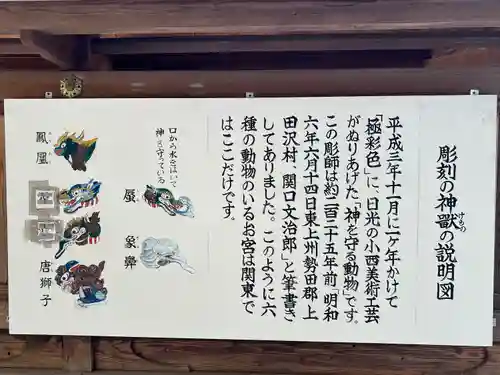 彫刻の神獣の説明図
けもの
平成三年十一月に二ヶ年かけて
「極彩色」に、日光の小西美術工芸
がぬりあげた「神を守る動物」です。
この彫師は約二百二十五年前「明和
六年六月十四日東上州勢田郡上
田沢村、関口文治郎」と筆書き
してありました。このように六
種の動物のいるお宮は関東で
はここだけです。
口から水をはいて
神を守っている
蜃
象鼻
鳳凰
唐獅子